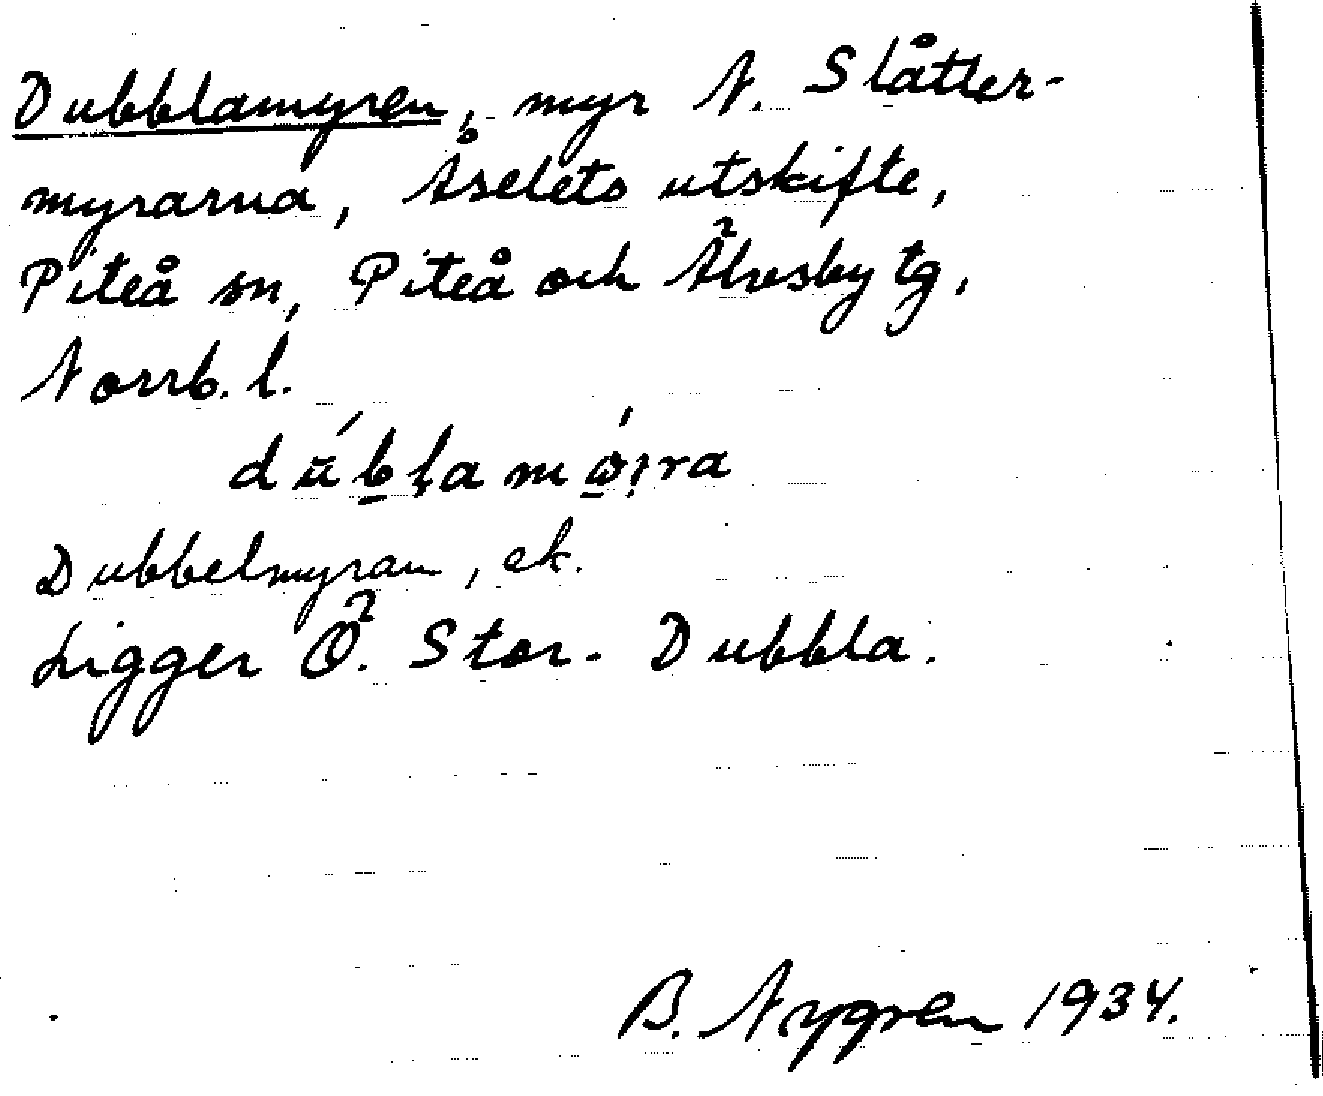 Dubblamyren, myr N. Slåtter-
myrarna, Åselets utskifte,
Piteå sn, Piteå och Älvsby tg,
Norrb. l.
dúbḷa mö́ịra
Dubbelmyran, ek.
Ligger Ö. Stor-Dubbla.
B. Nygren 1934.